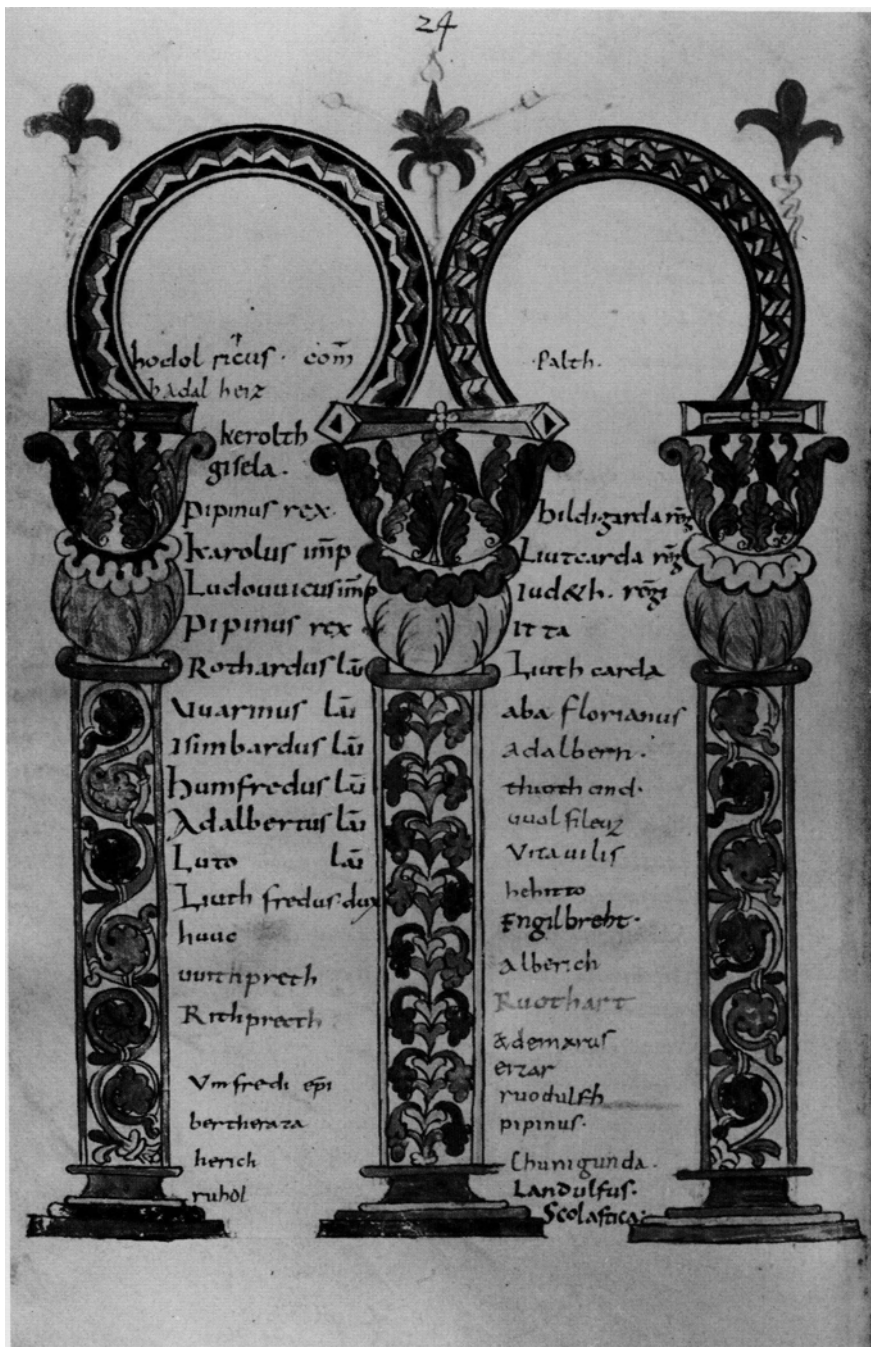 24
hodolricus · com̄
hadalherz
kerolth
gisela ·
pipinus rex ·
karolus im̄p
Ludouuicus im̄p
pipinus rex
Rothardus lāū
Vuarinus lāū
isimbardus lāū
humfredus lāū
Adalbertus lāū
Luto lāū
Liuthfredus · dux
huuc
uuithpreth
Rithpreth
Vmfredi ep̄i
bertheraza
herich
ruhol
· Palth ·
hildigarda rēg
Liutcarda rēg
Iud&h · rēgi
Itta
Liuthcarda
aba florianus
Adalbern ·
Vitauilis
hehitto
Engilbreht ·
Alberich
Ruothart
Ademarus
erzar
ruodulfh
pipinus ·
Chunigunda ·
Landulfus ·
Scolastica ·